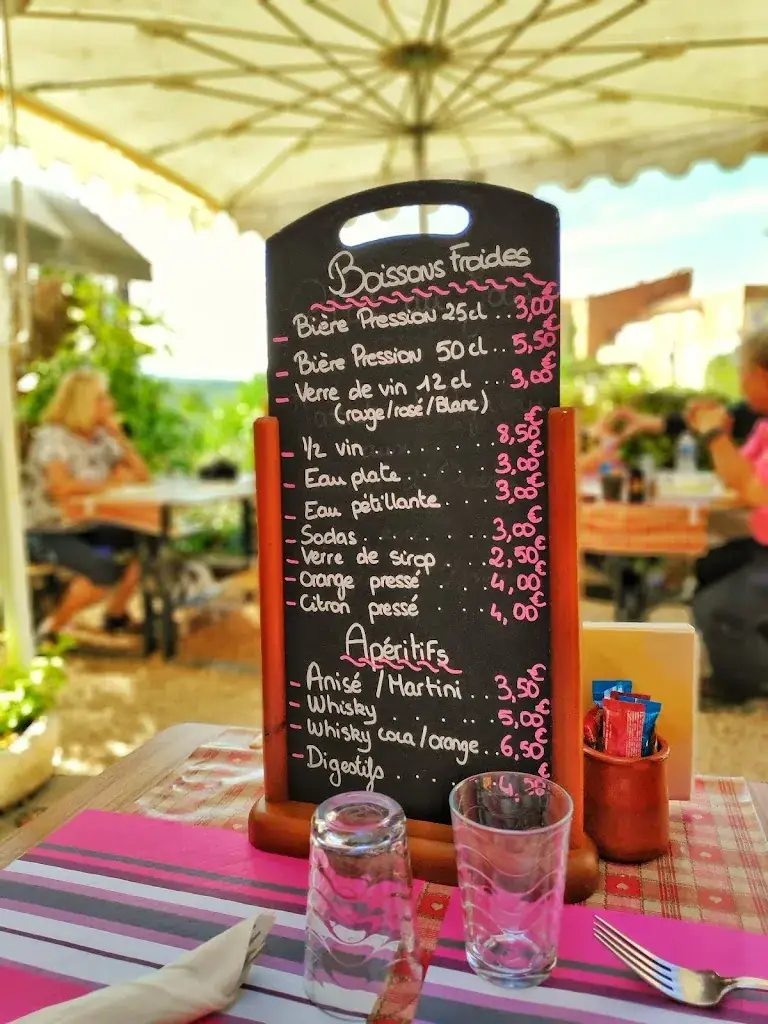 Boissons Froides
- Bière Pression 25cl .. 3,00€
- Bière Pression 50cl .. 5,50€
- Verre de vin 12cl ... 3,00€
(rouge/rosé/Blanc)
- 1/2 vin ........ 8,50€
- Eau plate ...... 3,00€
- Eau pétillante ... 3,00€
- Sodas ........ 3,00€
- Verre de sirop .... 2,50€
- Orange pressé .... 4,00€
- Citron pressé .... 4,00€
Apéritifs
- Anisé / Martini .. 3,50€
- Whisky ........ 5,00€
- Whisky coca/orange .. 6,50€
- Digestifs .... 4,50